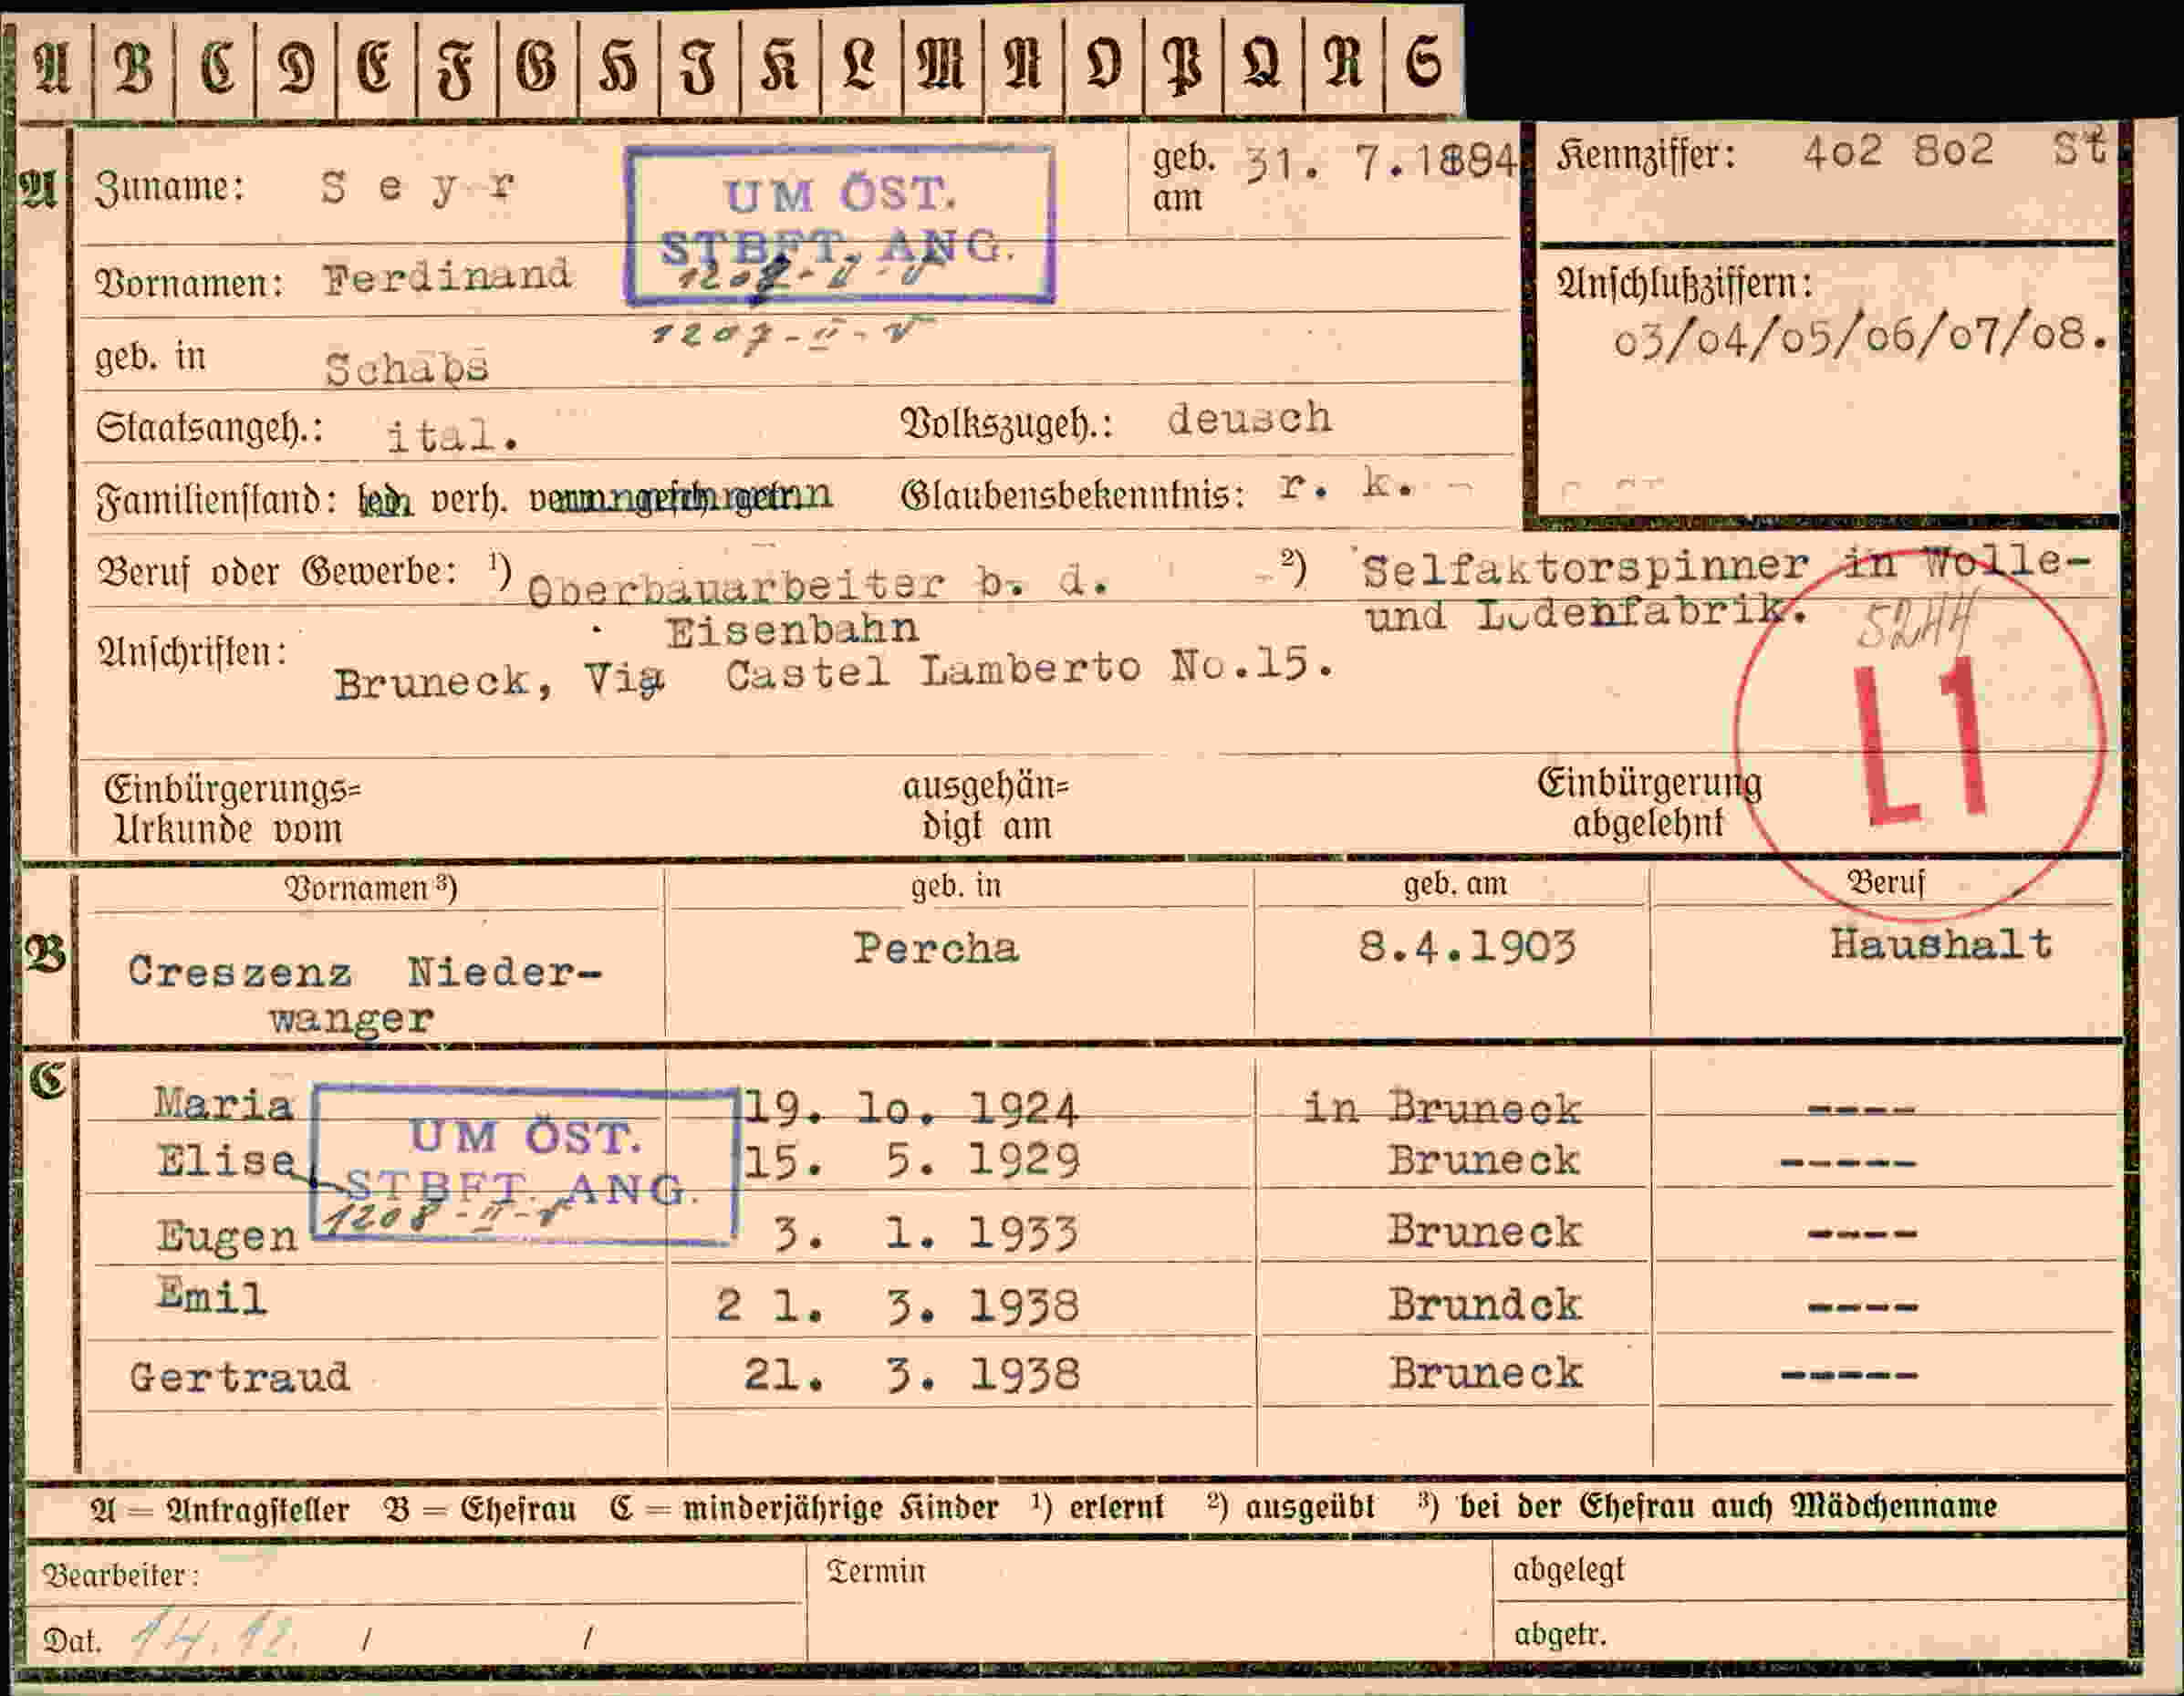 A B C D E F G H I K L M N O P Q R S
A
Zuname: Seyr
UM ÖST.
STBFT. ANG.
geb. am 31. 7.1894
Kennziffer: 4o2 8o2 St
Vornamen: Ferdinand
1207-II-V
Anschlußziffern:
o3/o4/o5/o6/o7/o8.
geb. in Schabs
Staatsangeh.: ital. Volkszugeh.: deusch
Familienstand: verh. Glaubensbekenntnis: r. k. -
Beruf oder Gewerbe: ¹) Oberbauarbeiter b. d. Eisenbahn
²) Selfaktorspinner in Wolle-
und Lodenfabrik.
5244
Anschriften: Bruneck, Via Castel Lamberto No.15.
L1
Einbürgerungs=
Urkunde vom
ausgehän=
digt am
Einbürgerung
abgelehnt
Vornamen ³) geb. in geb. am Beruf
B
Creszenz Nieder- Percha 8.4.1903 Haushalt
wanger
C
Maria 19. lo. 1924 in Bruneck ----
UM ÖST.
STBFT. ANG.
1208-II-V
Elise 15. 5. 1929 Bruneck -----
Eugen 3. 1. 1933 Bruneck ----
Emil 2 1. 3. 1938 Brundck ----
Gertraud 21. 3. 1938 Bruneck -----
A = Antragsteller B = Ehefrau C = minderjährige Kinder ¹) erlernt ²) ausgeübt ³) bei der Ehefrau auch Mädchenname
Bearbeiter: Termin abgelegt
Dat. 14.12. / / abgetr.